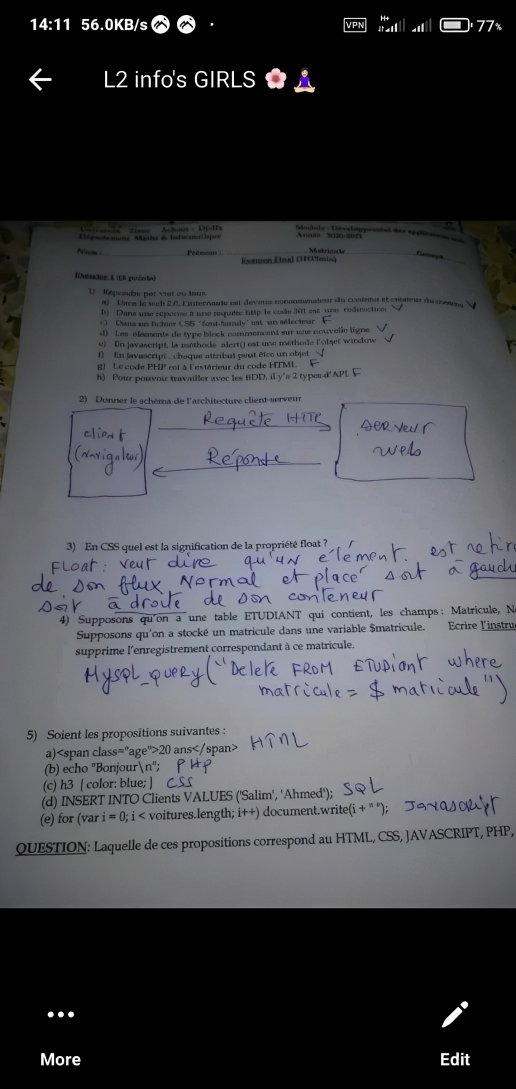 14:11 56.0KB/s
VPN H+ 77%
L2 info's GIRLS 🌸 🧘🏻‍♀️
Département Maths & Informatique
Module : Développement des applications
Année 2020-2021
Prénom : Matricule
Examen Final (1H15min)
Exercice 1 (8 points)
1) Répondre par vrai ou faux
a) Dans le web 2.0, l'internaute est devenu consommateur du contenu et créateur du contenu V
b) Dans une réponse à une requête http le code 301 est une redirection V
c) Dans un fichier CSS 'font-family' est un sélecteur F
d) Les éléments de type block commencent sur une nouvelle ligne V
e) En javascript, la méthode alert() est une méthode l'objet window V
f) En javascript, chaque attribut peut être un objet V
g) Le code PHP est à l'extérieur du code HTML F
h) Pour pouvoir travailler avec les BDD, il y'a 2 types d'API. F
2) Donner le schéma de l'architecture client-serveur
client
(navigateur)
Requête HTTP
Réponse
serveur
web
3) En CSS quel est la signification de la propriété float ?
Float : veut dire qu'un élément est
de son flux Normal et placé soit à
soit à droite de son conteneur
4) Supposons qu'on a une table ETUDIANT qui contient, les champs : Matricule,
Supposons qu'on a stocké un matricule dans une variable $matricule. Ecrire
supprime l'enregistrement correspondant à ce matricule.
Mysql_query("Delete FROM ETUDiant where
matricule = $ matricule")
5) Soient les propositions suivantes :
a)<span class="age">20 ans</span> HTML
(b) echo "Bonjour\n"; PHP
(c) h3 { color: blue; } CSS
(d) INSERT INTO Clients VALUES ('Salim', 'Ahmed'); SQL
(e) for (var i = 0; i < voitures.length; i++) document.write(i + " "); Javascript
QUESTION: Laquelle de ces propositions correspond au HTML, CSS, JAVASCRIPT, PHP,
More
Edit